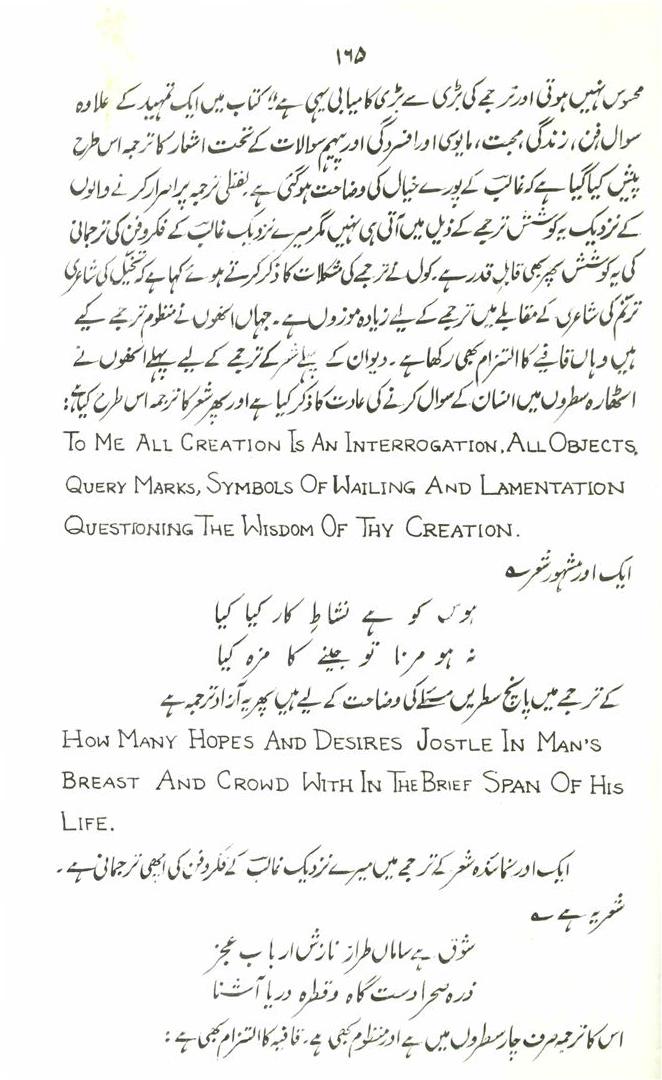 ۱۶۵
محسوس نہیں ہوتی اور ترجمے کی بڑی سے بڑی کامیابی یہی ہے" کتاب میں ایک تمہید کے علاوہ
سوال، فن، زندگی، محبت، مایوسی اور افسردگی اور پیہم سوالات کے تحت اشعار کا ترجمہ اس طرح
پیش کیا گیا ہے کہ غالبؔ کے پورے خیال کی وضاحت ہوگئی ہے لفظی ترجمہ پر اسرار کرنے والوں
کے نزدیک یہ کوشش ترجمے کے ذیل میں آتی ہی نہیں مگر میرے نزدیک غالبؔ کے فکر و فن کی ترجمانی
کی یہ کوشش پھر بھی قابلِ قدر ہے۔ کول نے ترجمے کی مشکلات کا ذکر کرتے ہوئے کہا ہے کہ تخیّل کی شاعری
ترنّم کی شاعری کے مقابلے میں ترجمے کے لیے زیادہ موزوں ہے۔ جہاں انھوں نے منظوم ترجمے کیے
ہیں وہاں قافیے کا التزام بھی رکھا ہے۔ دیوان کے پہلے شعر کے ترجمے کے لیے پہلے انھوں نے
اٹھارہ سطروں میں انسان کے سوال کرنے کی عادت کا ذکر کیا ہے اور پھر شعر کا ترجمہ اس طرح کیا ہے:
TO ME ALL CREATION IS AN INTERROGATION, ALL OBJECTS,
QUERY MARKS, SYMBOLS OF WAILING AND LAMENTATION
QUESTIONING THE WISDOM OF THY CREATION.
ایک اور مشہور شعر ؎
ہوس کو ہے نشاطِ کار کیا کیا
نہ ہو مرنا تو جینے کا مزہ کیا
کے ترجمے میں پانچ سطریں مسئلے کی وضاحت کے لیے ہیں پھر یہ آزاد ترجمہ ہے
HOW MANY HOPES AND DESIRES JOSTLE IN MAN'S
BREAST AND CROWD WITH IN THE BRIEF SPAN OF HIS
LIFE.
ایک اور نمائندہ شعر کے ترجمے میں میرے نزدیک غالبؔ کے فکر و فن کی اچھی ترجمانی ہے۔
شعر یہ ہے ؎
شوق ہے ساماں طراز نازش ارباب عجز
ذرہ صحرا دست گاہ و قطرہ دریا آشنا
اس کا ترجمہ صرف چار سطروں میں ہے اور منظوم بھی ہے۔ قافیہ کا التزام بھی ہے: